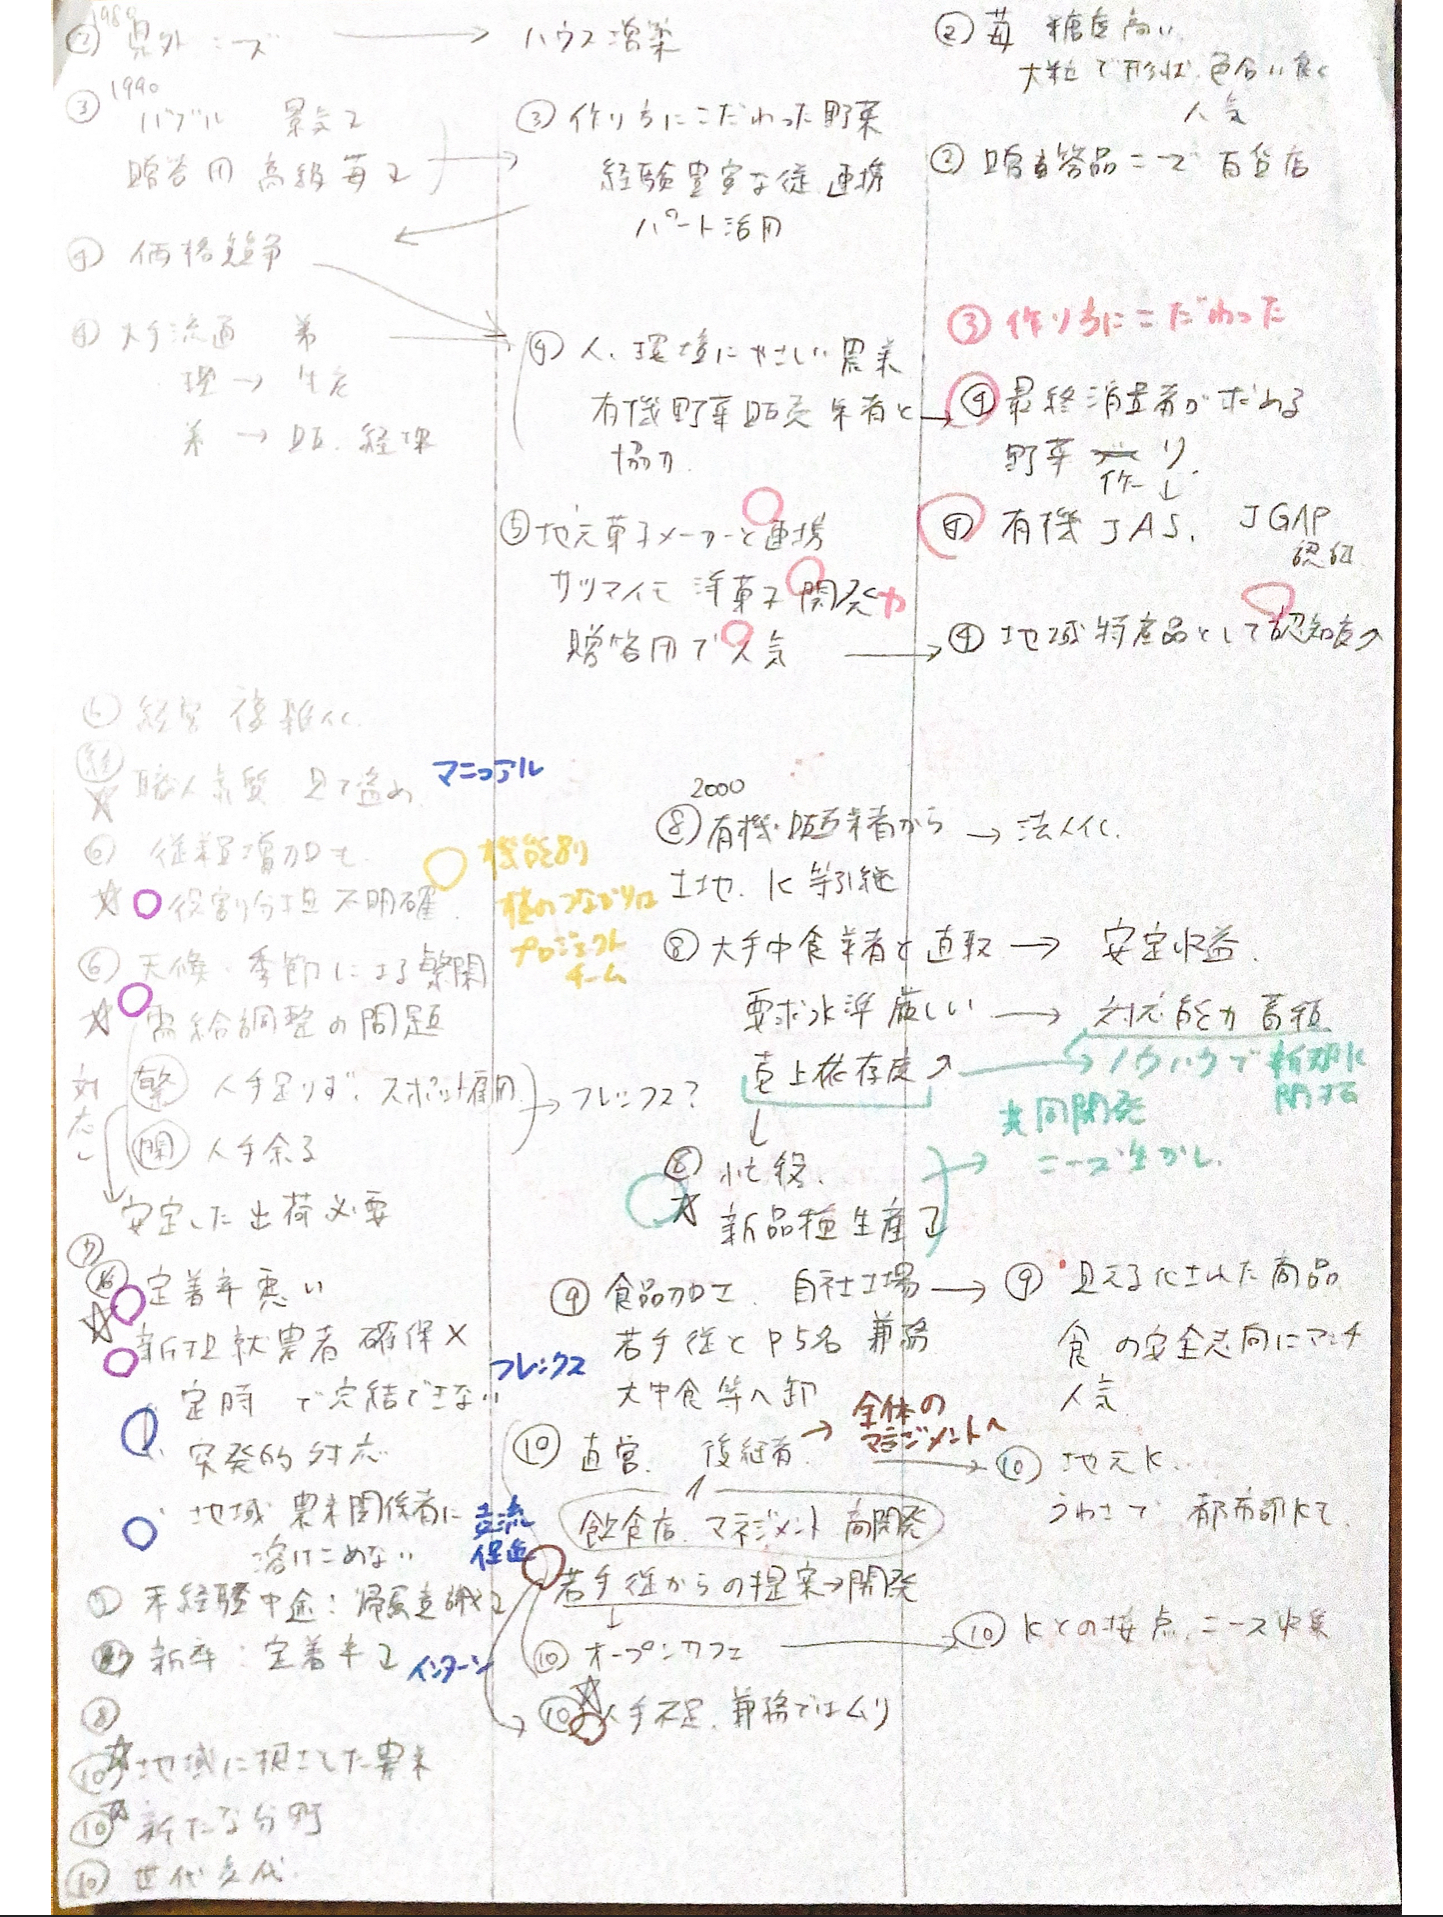 1980
② 県外ニーズ → ハウス増築
② 苺 糖度高い
大粒で形状、色合い良く
人気
1990
③ バブル 景気↓
贈答用 高級苺↓
③ 作り方にこだわった野菜
経験豊富な従 連携
パート活用
② 贈答品ニーズ 百貨店
④ 価格競争
④ 大手流通 弟
→ 生産
弟 → 販. 経理
④ 人、環境にやさしい農業
有機野菜販売業者と
協力
③ 作り方にこだわった
④ 最終消費者が求める
野菜 作り
⑤ 地元菓子メーカーと連携
サツマイモ 洋菓子 開発
贈答用で人気
有機JAS、JGAP
認証
④ 地域特産品として認知度↗
⑥ 経営 複雑化
職人気質 見て盗め
マニュアル
⑥ 従業員増加も
☆ 役割分担 不明確
機能別
横のつながりは
プロジェクト
チーム
⑥ 天候・季節による繁閑
☆ 需給調整の問題
対応
繁 人手足りず、スポット雇用
閑 人手余る
→ フレックス?
安定した出荷必要
2000
⑧ 有機・販売業者から → 法人化
土地、K 等引継
⑧ 大手中食業者と直取 → 安定収益
要求水準厳しい → 対応能力蓄積
売上依存度↗ → ノウハウで新規K
開拓
共同開発
ニーズ生かし
⑧ 忙殺、
☆ 新品種生産↓
⑦
定着率悪い
☆ 新規就農者 確保×
定時で完結できない
フレックス
突発的対応
地域 農業関係者に
溶けこめない
交流
促進
⑦ 未経験中途:帰属意識↓
新卒:定着率↓
インターン
⑧
⑩ ☆ 地域に根ざした農業
⑩ ☆ 新たな分野
⑩ 世代交代
⑨ 食品加工、自社工場 →
若手従とP5名 兼務
大中食等へ卸
⑨ 見える化された商品
食の安全志向にマッチ
人気
⑩ 直営、後継者
→ 全体の
マネジメントへ
飲食店、マネジメント 商開発
若手従からの提案→開発
⑩ オープンカフェ →
⑩ ☆ 人手不足、兼務ではムリ
⑩ 地元K
うわさで 都市部Kも
⑩ Kとの接点、ニーズ収集